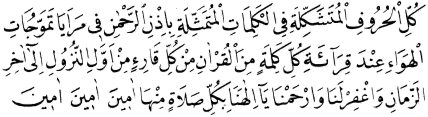 كُلِّ الْحُرُوفِ الْمُتَشَكِّلَةِ فِى الْكَلِمَاتِ الْمُتَمَثِّلَةِ بِاِذْنِ الرَّحْمٰنِ فِى مَرَايَا تَمَوُّجَاتِ
الْهَوَٓاءِ عِنْدَ قِرَٓائَةِ كُلِّ كَلِمَةٍ مِنَ الْقُرْاٰنِ مِنْ كُلِّ قَارِءٍ مِنْ اَوَّلِ النُّزُولِ اِلٰٓى اٰخِرِ
الزَّمَانِ وَاغْفِرْلَنَا وَارْحَمْنَا يَٓا اِلٰهَنَا بِكُلِّ صَلَاةٍ مِنْهَا اٰمِينَ اٰمِينَ اٰمِينَ